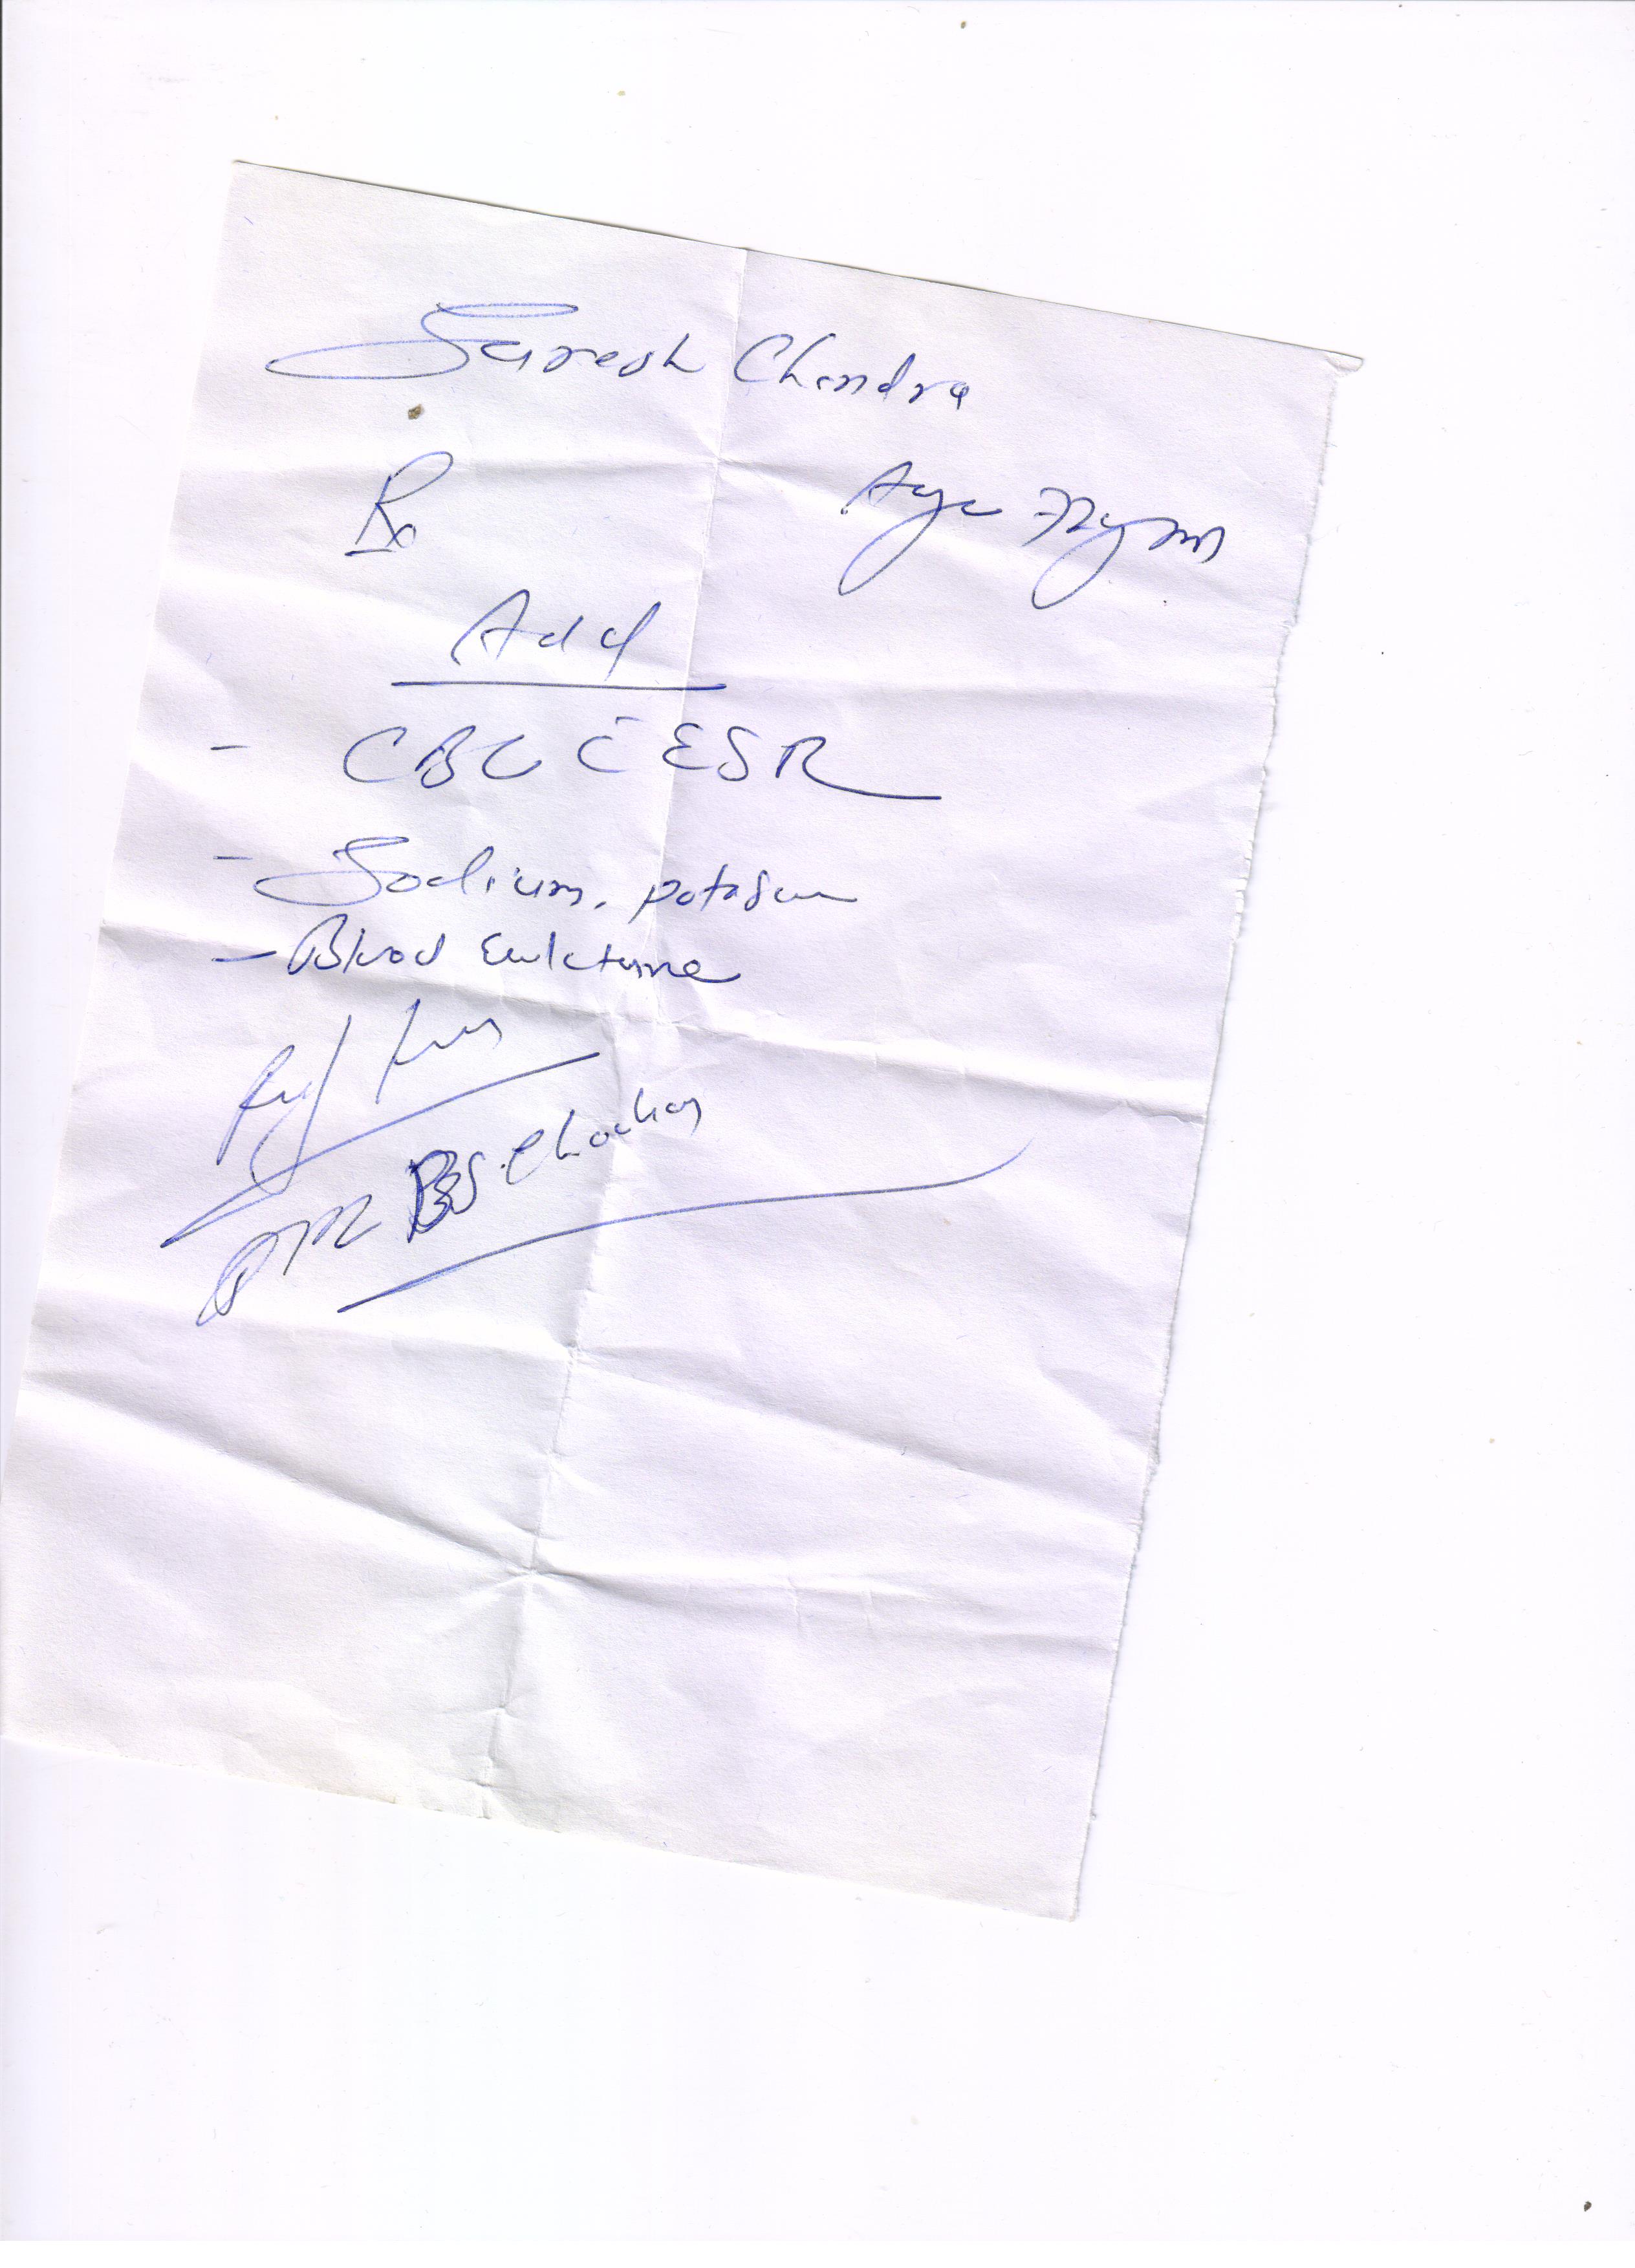 Suresh Chandra
Rx Age 72 yrs
Add
- CBC c̄ ESR
- Sodium, potasum
- Blood Culcture
DR BS Chauhan